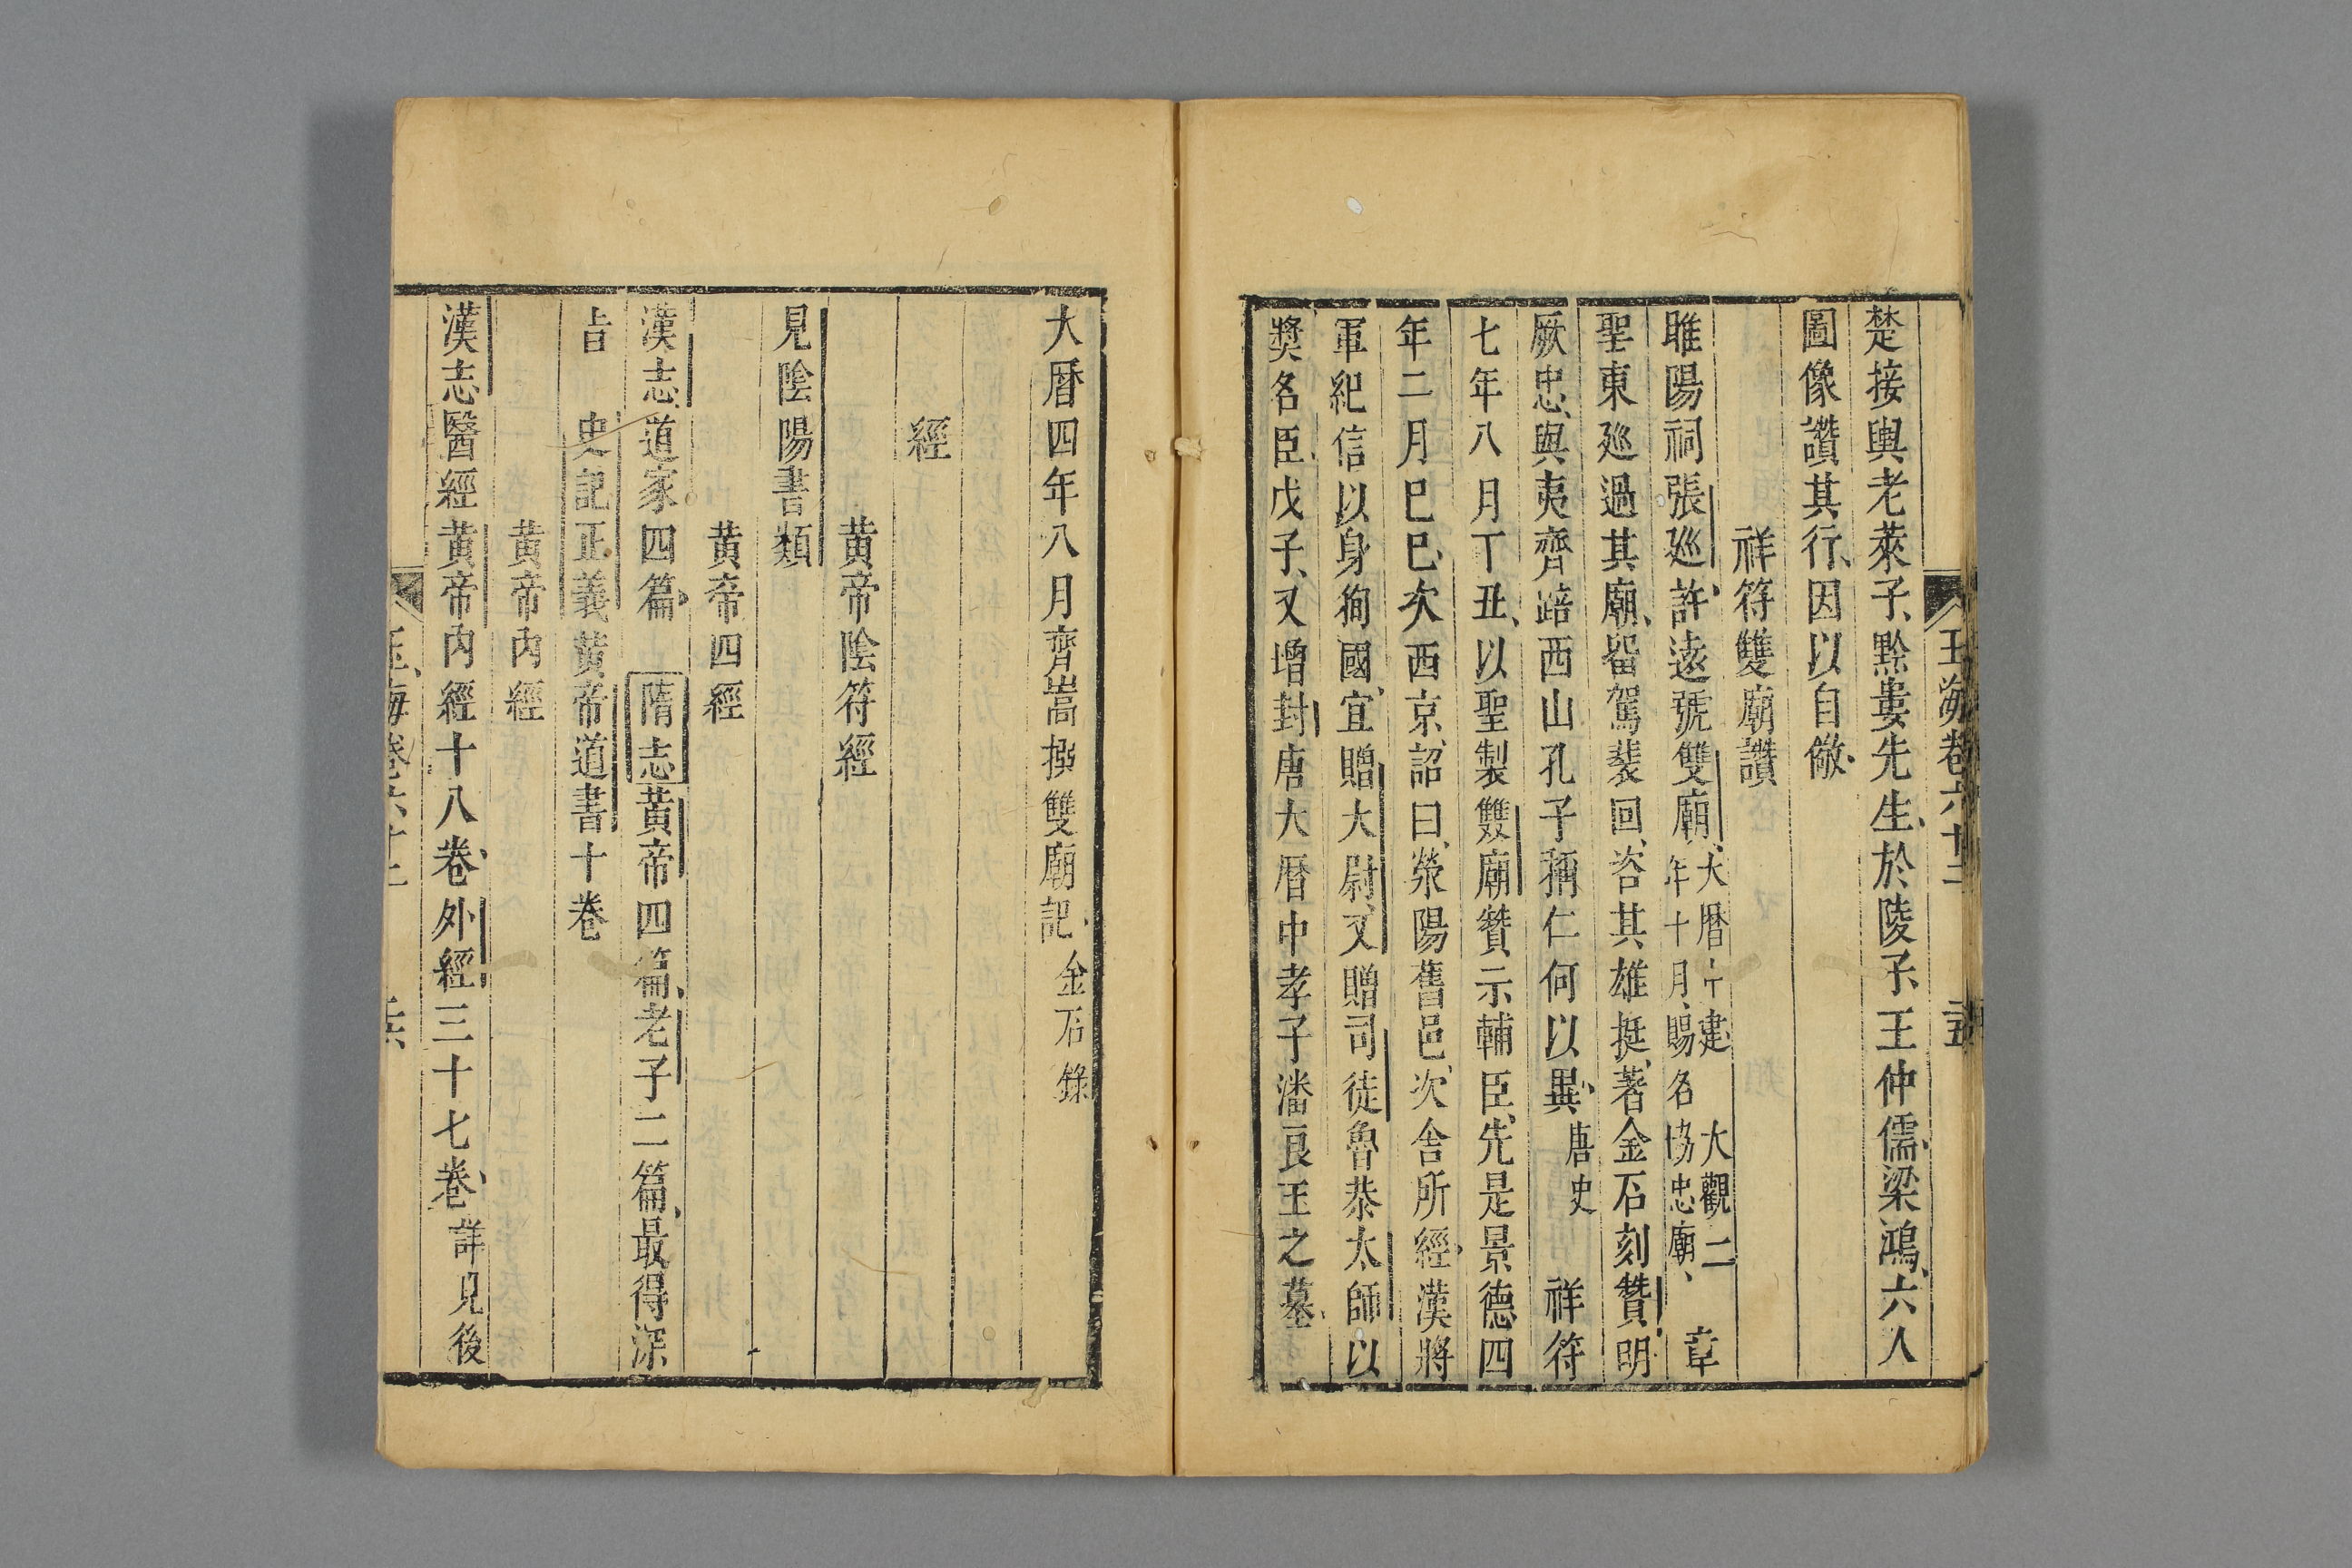 楚接輿老萊子黔婁先生於陵子王仲儒梁鴻六人
圖像讚其行因以自儆
祥符雙廟讚
睢陽祠張巡許遠號雙廟大曆中建大觀二年十月賜名協忠廟章
聖東廵過其廟留駕裴回咨其雄挺著金石刻贊明
厥忠與夷齊踣西山孔子稱仁何以異唐史祥符
七年八月丁丑以聖製雙廟贊示輔臣先是景德四
年二月巳巳次西京詔曰滎陽舊邑次舍所經漢將
軍紀信以身徇國宜贈大尉又贈司徒魯恭太師以
獎名臣戊子又增封唐大曆中孝子潘良王之墓
玉海卷六十二
大曆四年八月齊嵩撰雙廟記金石錄
經
黄帝陰符經
見陰陽書類
黄帝四經
漢志道家四篇隋志黄帝四篇老子二篇最得深
旨史記正義黄帝道書十卷
黄帝內經
漢志醫經黄帝內經十八卷外經三十七卷詳見後
玉海卷六十二